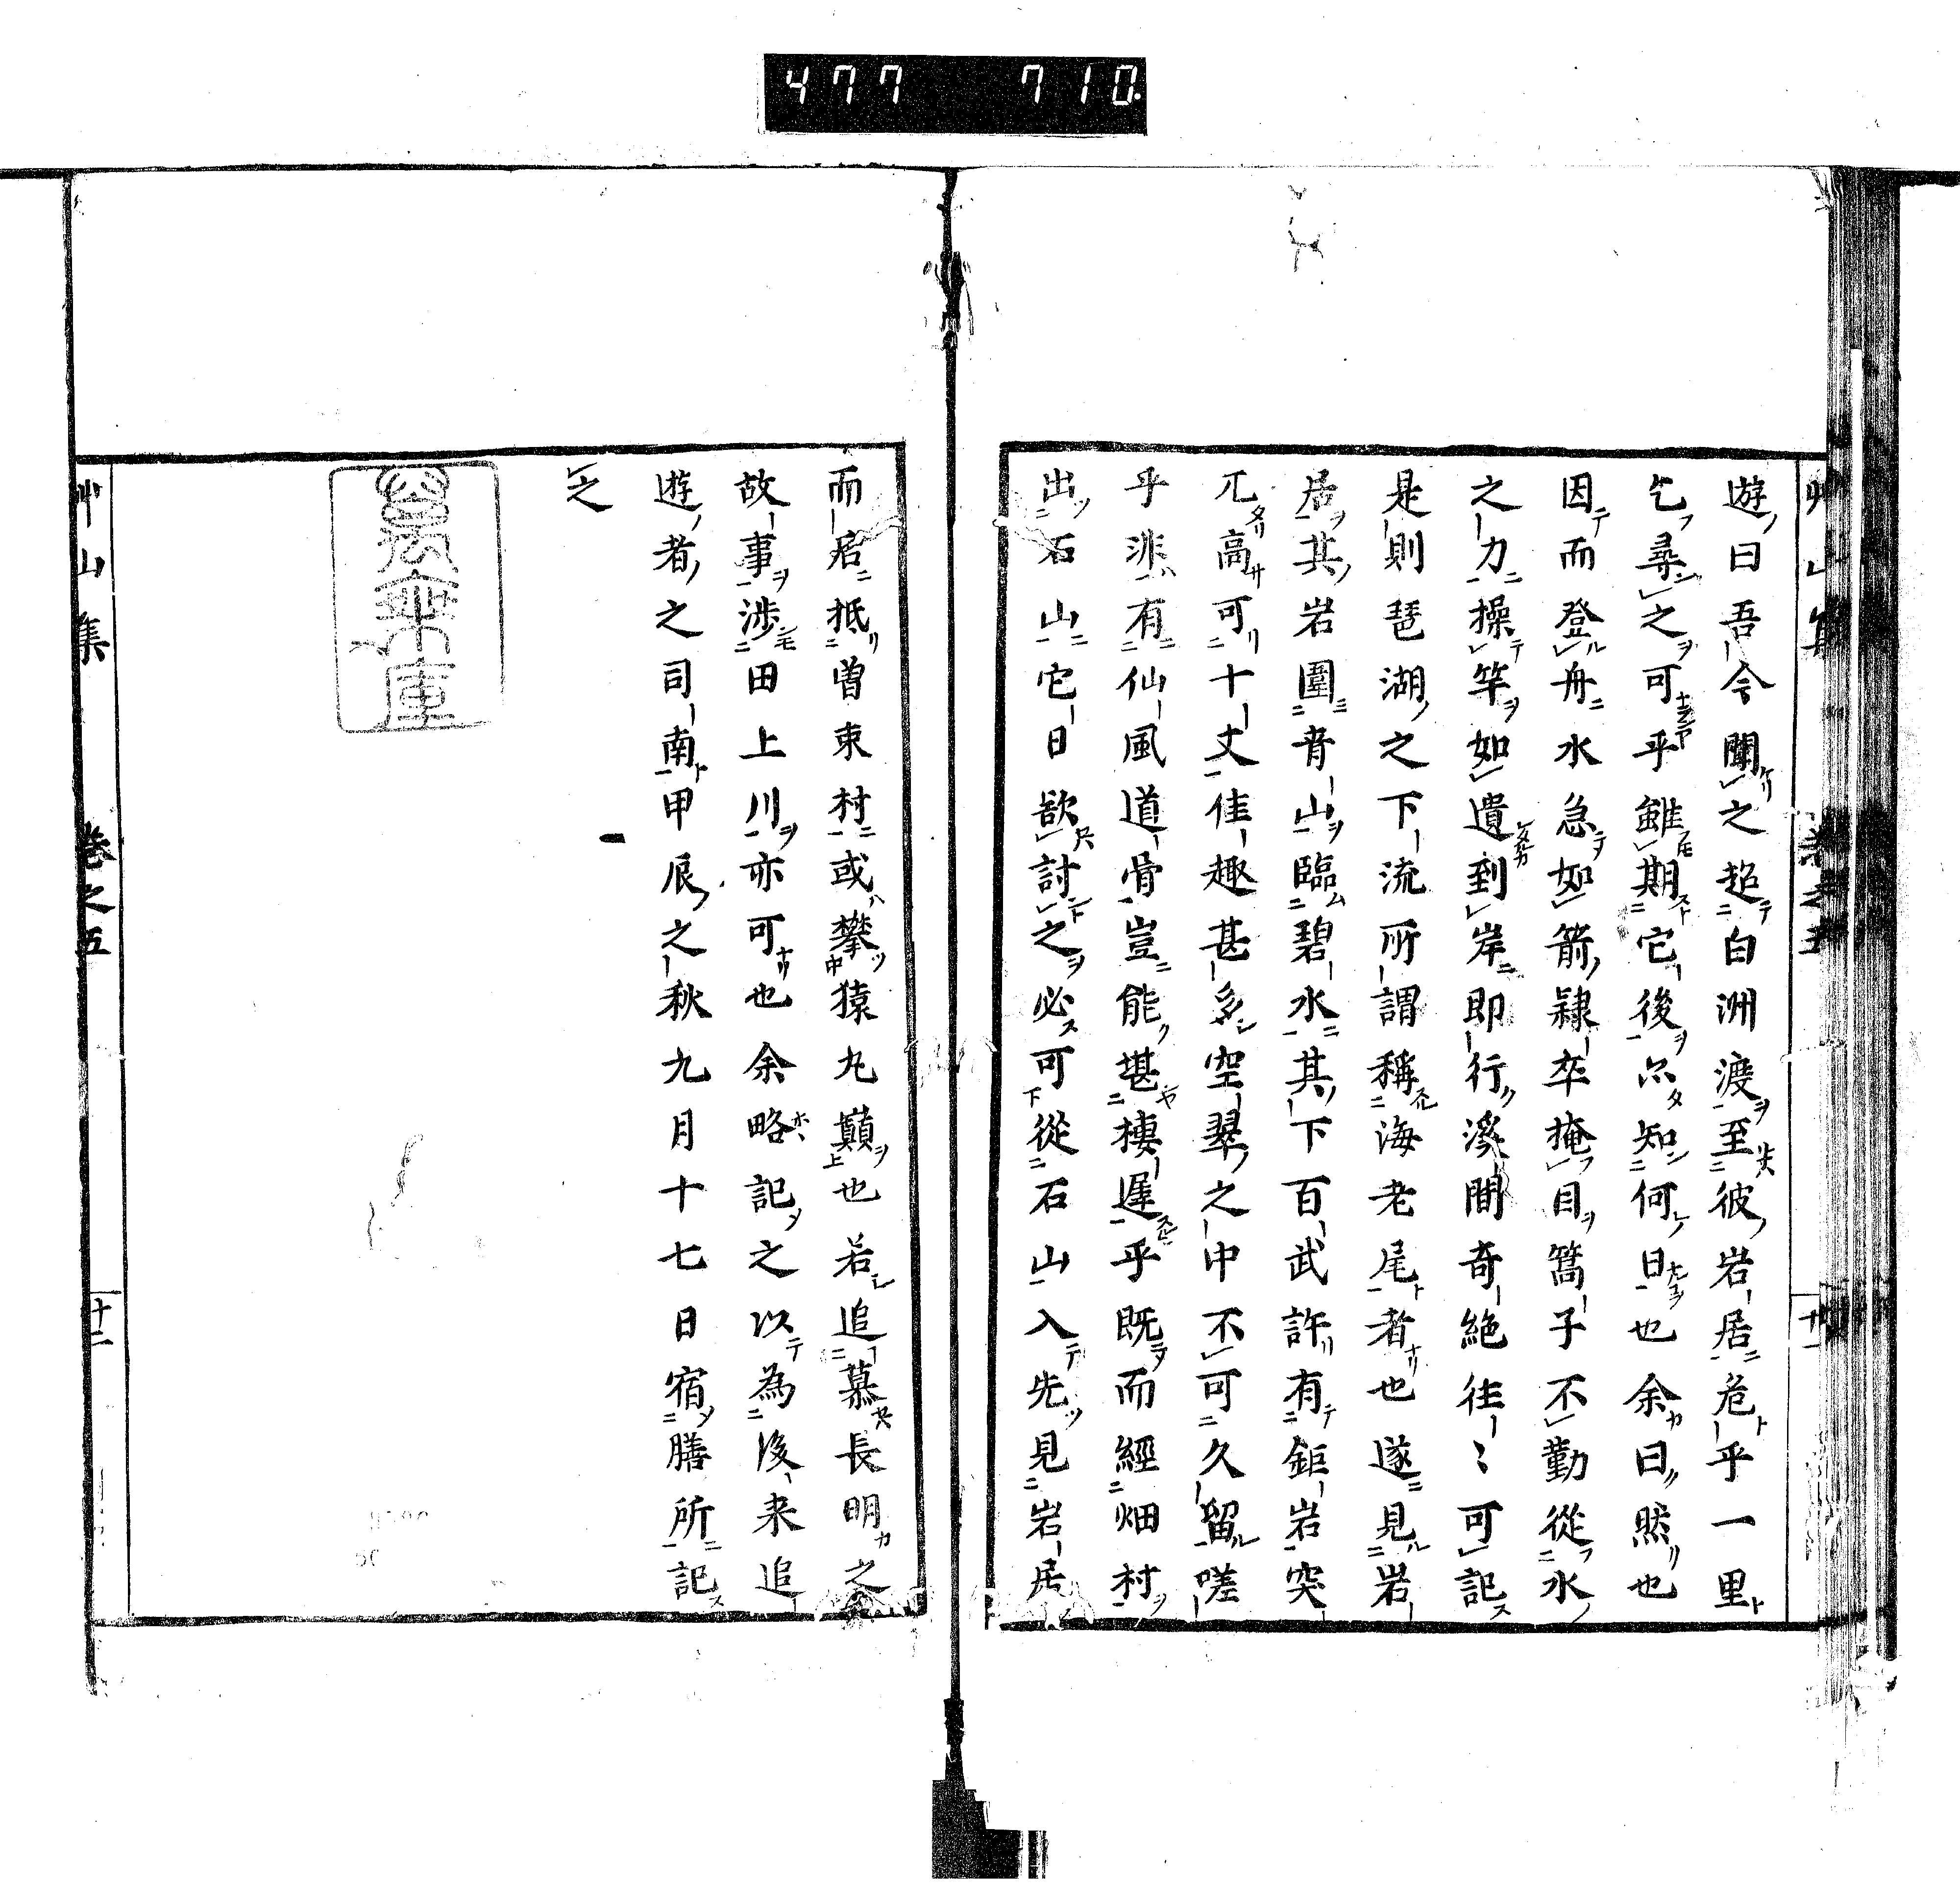 477 710.
遊曰吾今聞之超白洲渡至彼岩居危乎一里
乞尋之可乎雖期它後只知何日也余曰然也
因而登舟水急如箭隷卒掩目篙子不勤從水
之力操竿如遺到岸即行溪間奇絶往〻可記
是則琶湖之下流所謂稱海老尾者也遂見岩
居其岩圍背山臨碧水其下百武許有鉅岩突
兀高可十丈佳趣甚多空翠之中不可久留嗟
乎非有仙風道骨豈能堪棲遲乎既而經畑村
出石山它日欲討之必可從石山入先見岩居
艸山集 卷之五 十二
而后抵曽束村或攀猿丸巓也若追慕長明之
故事渉田上川亦可也余略記之以為後来追
遊者之司南甲辰之秋九月十七日宿膳所記
之